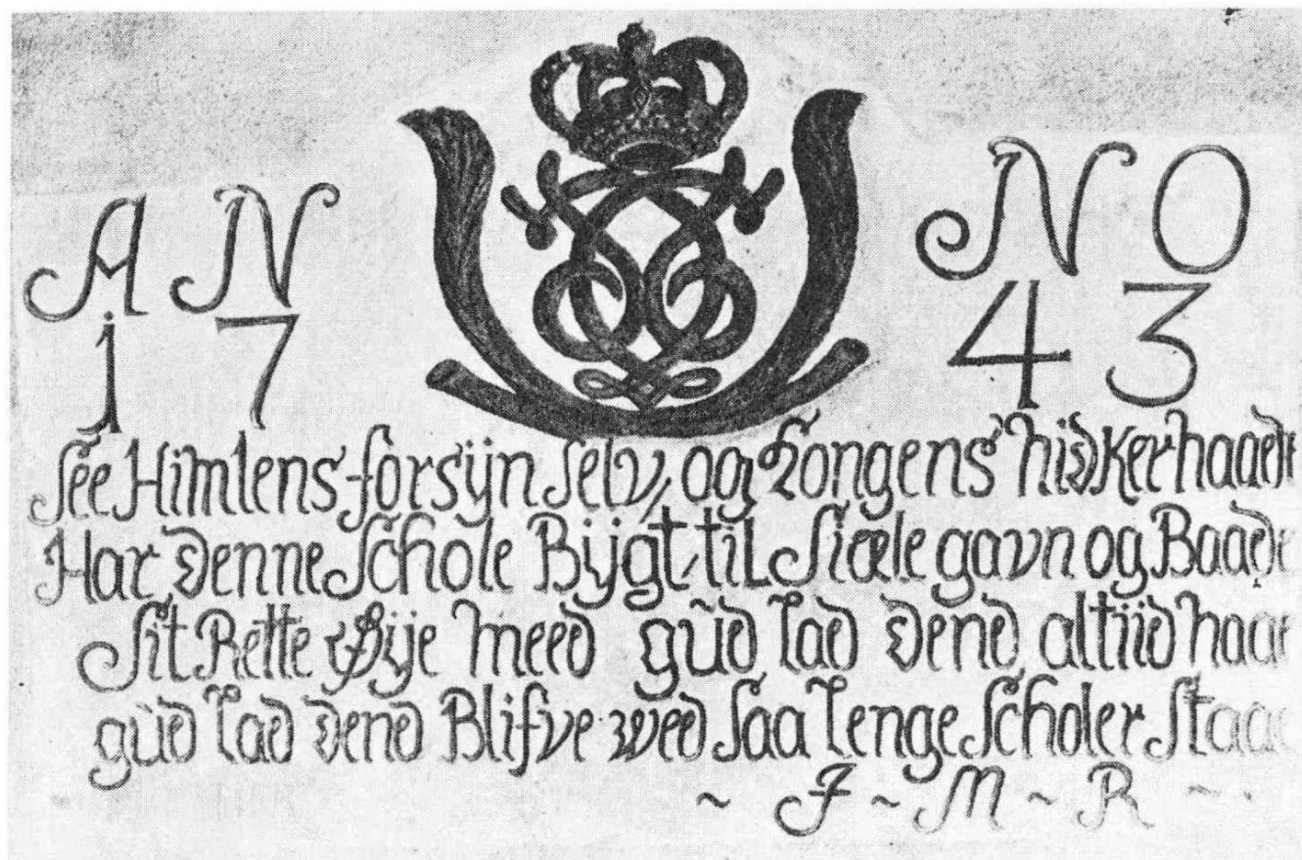 AN NO
17 43
See Himlens forsÿn Selv, og Kongens
Har denne Schole Bÿgt, til Siæle gavn og Baade
Sit Rette Øÿe meed gùd lad dend altiid haae
gùd lad dend Blifve wed Saa lenge Scholer Staae
~ J ~ M ~ R ~